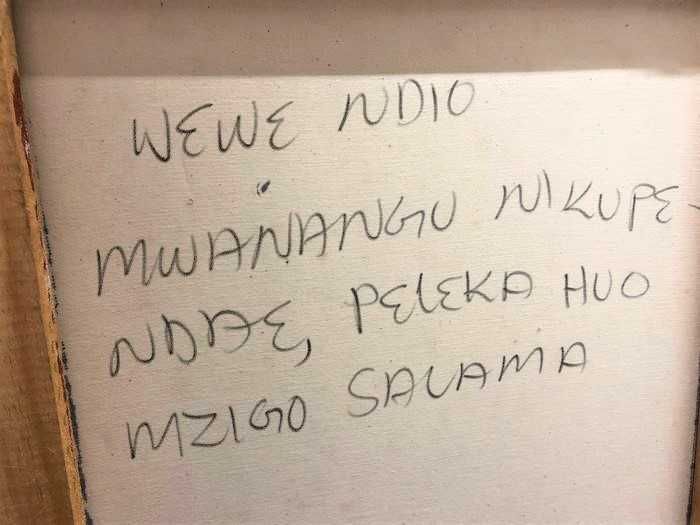 WEWE NDIO
MWANANGU NIKUPE-
NDAE, PELEKA HUO
MZIGO SALAMA